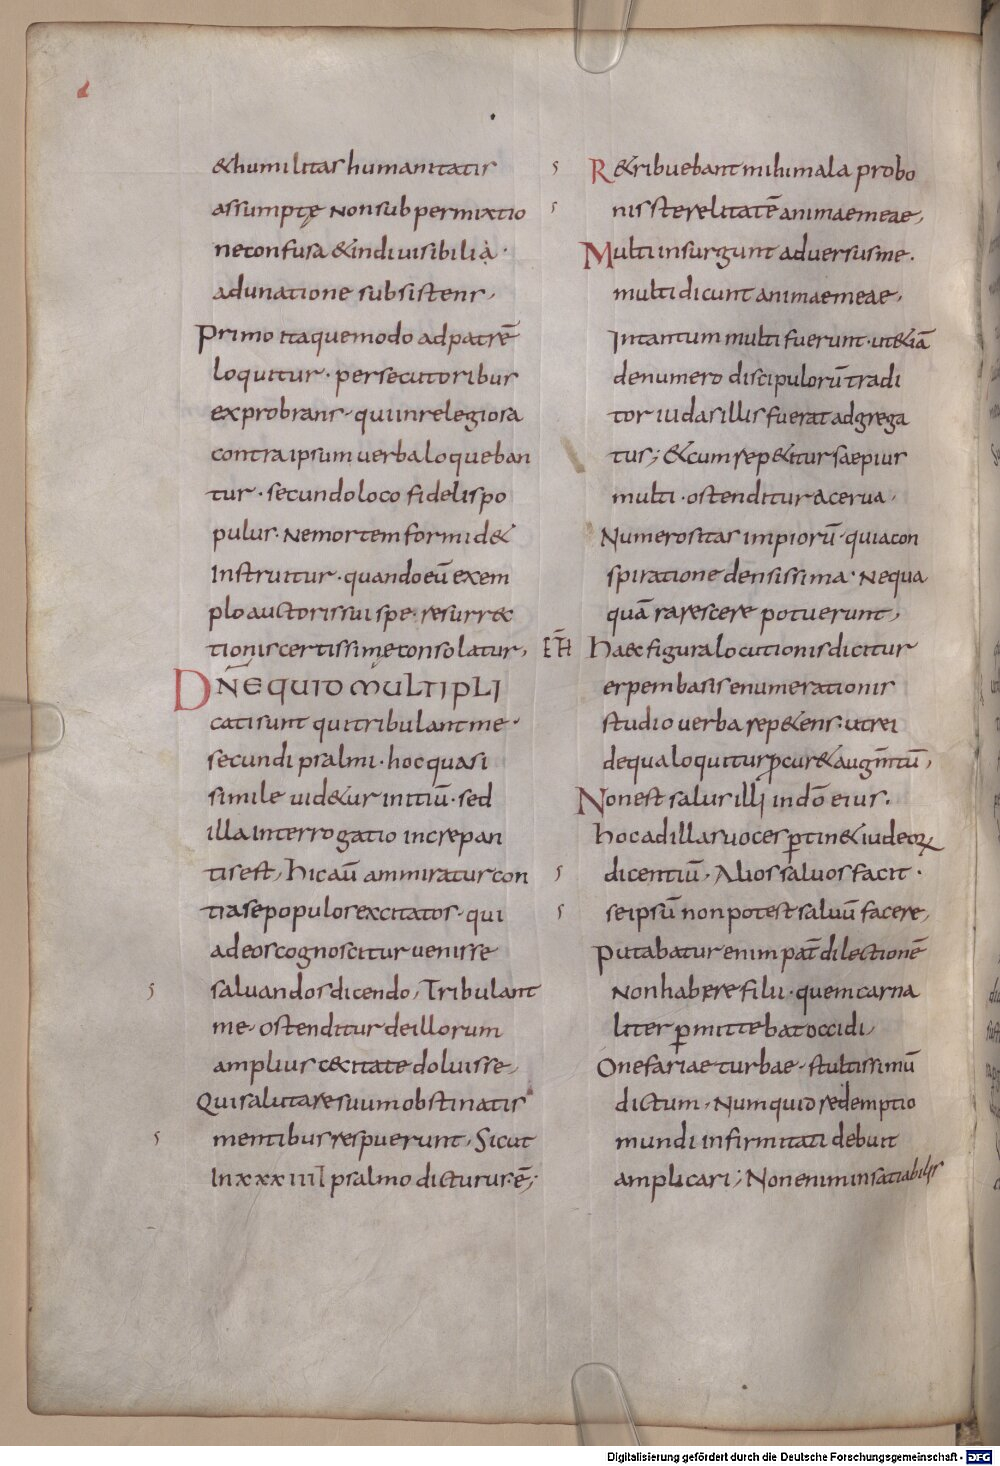 &humilitas humanitatis
assumptę Non sub permixtio
ne confusa & indiuisibili à·
adunatione subsistens,
Primo itaque modo ad patrē
loquitur· persecutoribus
exprobrans· qui inrelegiosa
contra ipsum uerba loqueban
tur· secundo loco fidelis po
pulus· Ne mortem formid&
Instruitur· quando eū exem
plo auctoris sui spe· resurrec
tionis certissime consolatur,
DN̄E QUID MULTIPLI
cati sunt qui tribulant me·
secundi psalmi· hoc quasi
simile uid&ur initiū· sed
illa Interrogatio increpan
tis est, hic aū ammiratur con
tra se populos excitatos· qui
ad eos cognoscitur uenisse
saluandos dicendo, Tribulant
me· ostenditur de illorum
amplius cecitate doluisse,
Qui salutare suum obstinatis
mentibus respuerunt, Sicut
In xxxiiii psalmo dicturus ē;
R&ribuebant mihi mala pro bo
nis sterelitatē animae meae,
Multi insurgunt aduersus me·
multi dicunt animae meae,
Intantum multi fuerunt· ut &iā
de numero discipulorū tradi
tor iudas illis fuerat adgrega
tus; & cum rep&itur saepius
multi· ostenditur acerua,
Numerositas impiorū· quia con
spiratione densissima· Nequa
quā rarescere potuerunt,
Haec figura locutionis dicitur
epembasis enumerationis
studio uerba rep&ens· ut rei
de qua loquitur pcur& augm̄tū,
Non est salus illi in dō eius·
hoc ad illas uoces ptin& iudeoꝝ
dicentiū· Alios saluos facit·
se ipsū non potest saluū facere,
Putabatur enim pat̄ dilectionē
Non habere filii· quem carna
liter pmittebat occidi,
O nefariae turbae· stultissimū
dictum· Numquid redemptio
mundi infirmitati debuit
amplicari; Non enim insatiabilis
Digitalisierung gefördert durch die Deutsche Forschungsgemeinschaft - DFG